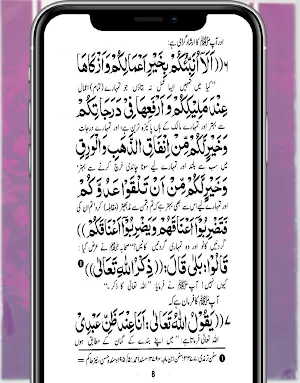 اور آپ ﷺ کا ارشاد گرامی ہے:
۶ ((أَلَا أُنَبِّئُكُمْ بِخَيْرِ أَعْمَالِكُمْ وَأَزْكَاهَا
"کیا میں تمہیں ایسا عمل نہ بتاؤں جو تمہارے (تمام) اعمال
عِنْدَ مَلِيْكِكُمْ وَأَرْفَعِهَا فِيْ دَرَجَاتِكُمْ
سے بہتر اور تمہارے مالک کے ہاں پاکیزہ ترین ہے اور تمہارے درجات
وَخَيْرٍ لَكُمْ مِنْ إِنْفَاقِ الذَّهَبِ وَالْوَرِقِ
میں سب سے بلند اور تمہارے لیے سونا چاندی خرچ کرنے سے بہتر
وَخَيْرٍ لَكُمْ مِنْ أَنْ تَلْقَوْا عَدُوَّكُمْ
اور تمہارے لیے اس سے بھی بہتر ہے کہ تم دشمن سے مڈبھیڑ (مقابلہ) کرو تم ان کی
فَتَضْرِبُوْا أَعْنَاقَهُمْ وَيَضْرِبُوْا أَعْنَاقَكُمْ))
گردنیں کاٹو اور وہ تمہاری گردنیں کاٹیں؟" صحابہ نے عرض کیا:
قَالُوْا: بَلٰى قَالَ: ((ذِكْرُ اللّٰهِ تَعَالٰى)) ❶
کیوں نہیں! آپ ﷺ نے فرمایا: "اللہ تعالیٰ کا ذکر۔"
آپ ﷺ کا فرمان ہے کہ
۷ ((يَقُوْلُ اللّٰهُ تَعَالٰى: أَنَا عِنْدَ ظَنِّ عَبْدِيْ
اللہ تعالیٰ فرماتا ہے: "میں اپنے بندے کے گمان کے مطابق ہوں
❶ سنن ترمذی: ۳۳۷۷
8